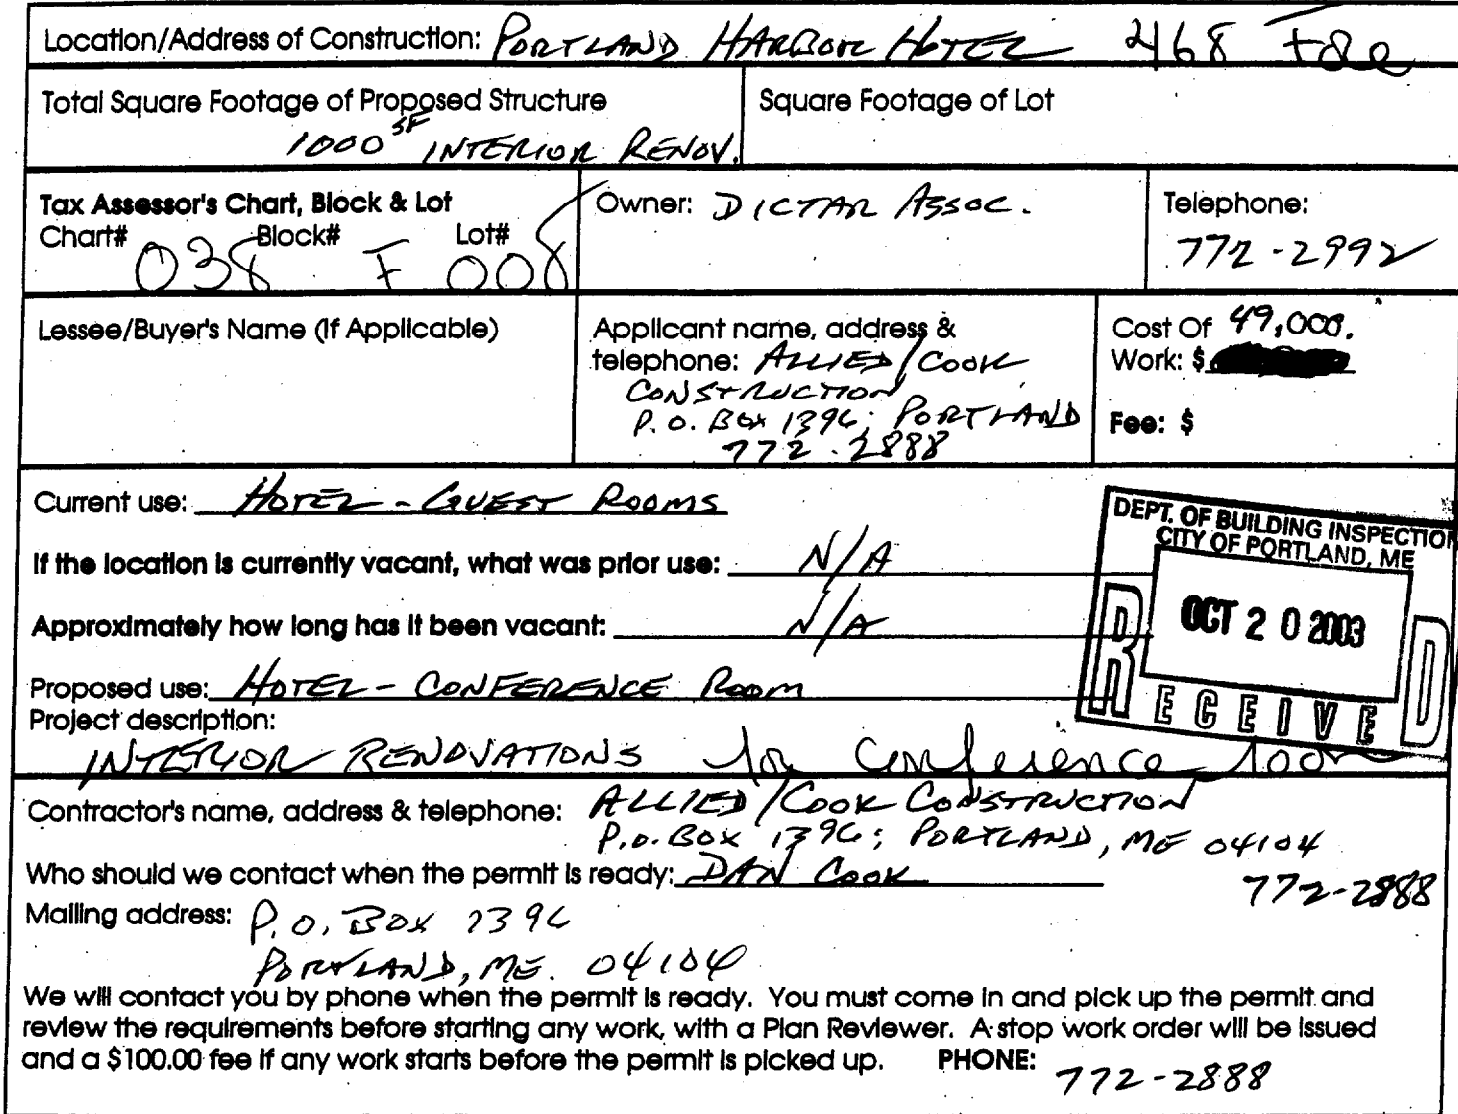 Location/Address of Construction: PORTLAND HARBOR HOTEL 468 Fore
Total Square Footage of Proposed Structure
1000 SF INTERIOR RENOV.
Square Footage of Lot
Tax Assessor's Chart, Block & Lot
Chart# Block# Lot#
038 F 008
Owner: DICTAR ASSOC.
Telephone:
772-2992
Lessee/Buyer's Name (If Applicable)
Applicant name, address &
telephone: ALLIED/COOK
CONSTRUCTION
P.O. BOX 1396; PORTLAND
772-2888
Cost Of 49,000.
Work: $
Fee: $
Current use: HOTEL - GUEST ROOMS
If the location is currently vacant, what was prior use: N/A
Approximately how long has it been vacant: N/A
Proposed use: HOTEL - CONFERENCE ROOM
Project description:
INTERIOR RENOVATIONS for Conference room
DEPT. OF BUILDING INSPECTION
CITY OF PORTLAND, ME
OCT 20 2003
RECEIVED
Contractor's name, address & telephone: ALLIED/COOK CONSTRUCTION
P.O. BOX 1396; PORTLAND, ME 04104
Who should we contact when the permit is ready: DAN COOK
772-2888
Mailing address: P.O. BOX 1396
PORTLAND, ME. 04104
We will contact you by phone when the permit is ready. You must come in and pick up the permit and
review the requirements before starting any work, with a Plan Reviewer. A stop work order will be issued
and a $100.00 fee if any work starts before the permit is picked up. PHONE:
772-2888